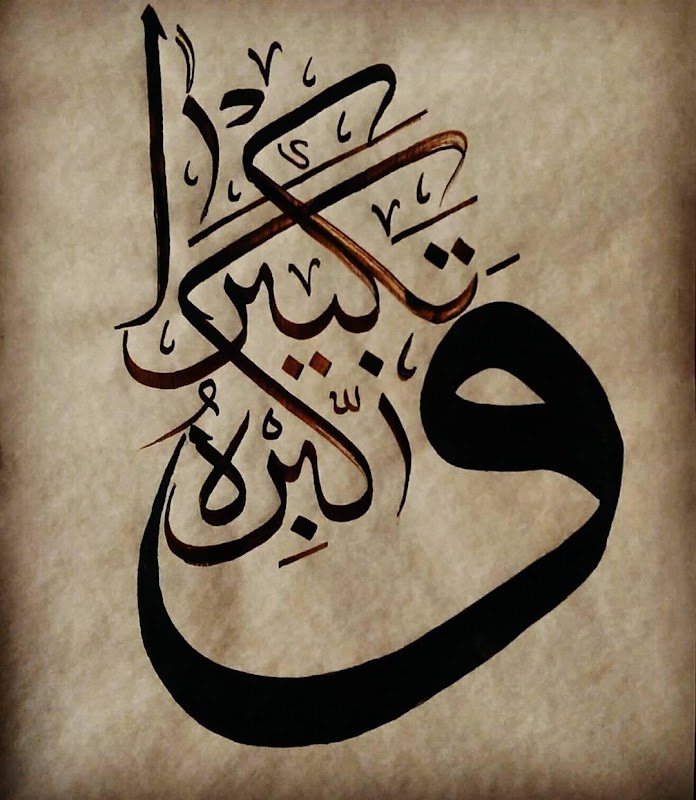 وَكَبِّرْهُ
تَكْبِيرًا